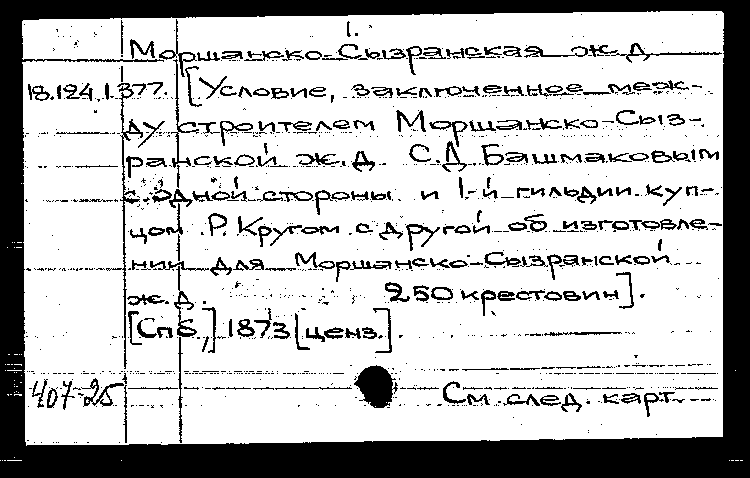 1.
Моршанско-Сызранская ж.д
18.124.1.377. [Условие, заключенное меж-
ду строителем Моршанско-Сыз-
ранской ж.д. С.Д Башмаковым
с одной стороны и 1-й гильдии куп-
цом Р. Кругом с другой об изготовле-
нии для Моршанско-Сызранской
ж.д. 250 крестовин].
[Спб,] 1873 [ценз.].
407-25 См. след. карт.